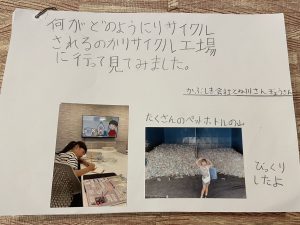 何がどのようにリサイクル
されるのかリサイクル工場
に行って見てみました。
かぶしき会社とね川さんぎょうさん
たくさんのペットボトルの山
びっくり
したよ